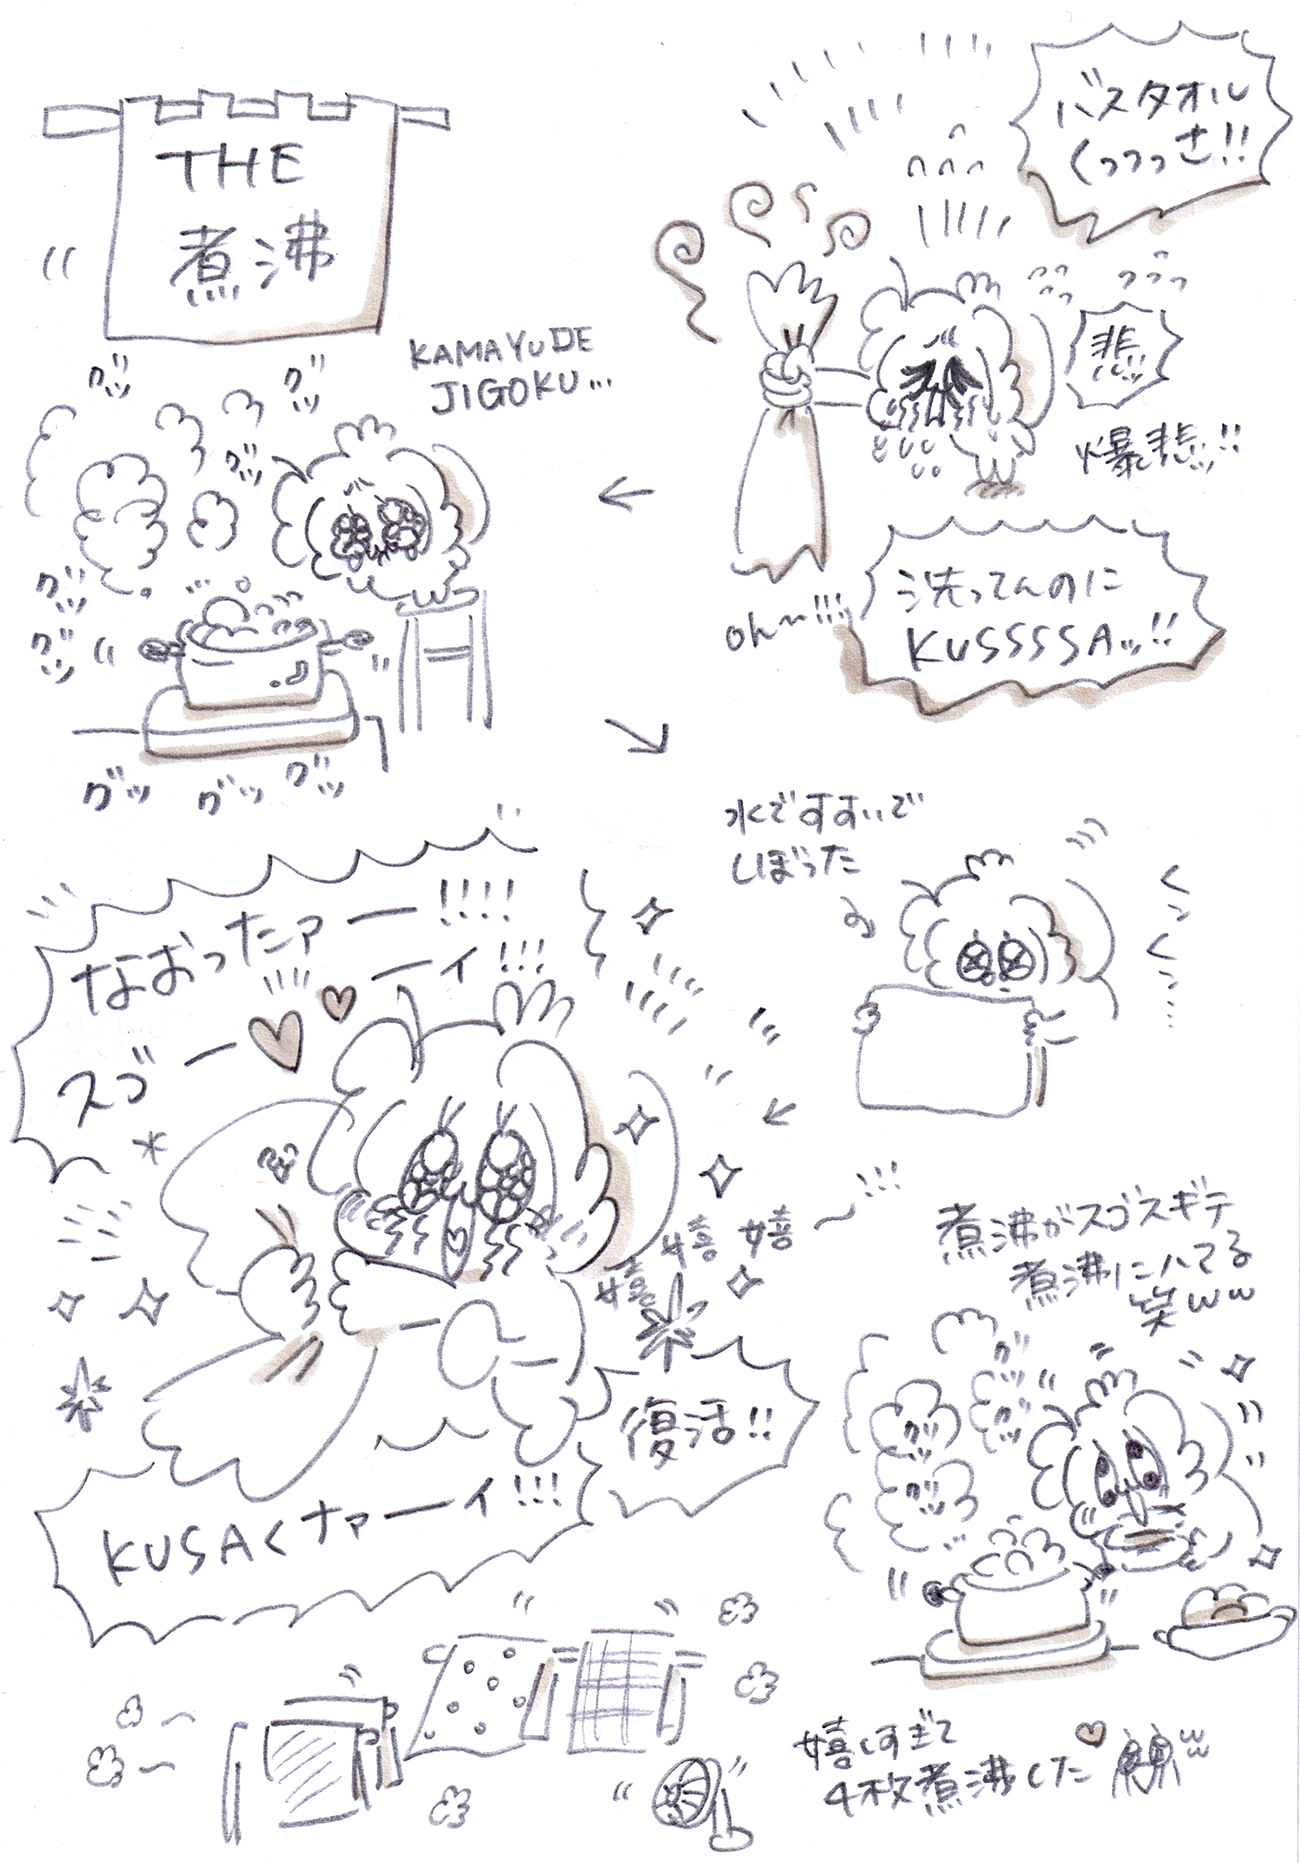 バスタオル
くっっっさ!!
悲ッ
爆悲ッ!!
洗ってんのに
KUSSSSAッ!!
oh〜!!!
THE
煮沸
KAMAYUDE
JIGOKU...
グッ
グッ
グッ
グッ
グッ
グッ
グッ
グッ
水ですすいで
しぼった
くンくン....
なおったァー!!!!
スゴーーーイ!!!
嬉嬉嬉〜!!!
復活!!
KUSAくナァーイ!!!
煮沸がスゴスギテ
煮沸にハマる
笑ww
グッ
グッ
グッ
嬉しすぎて
4枚煮沸した